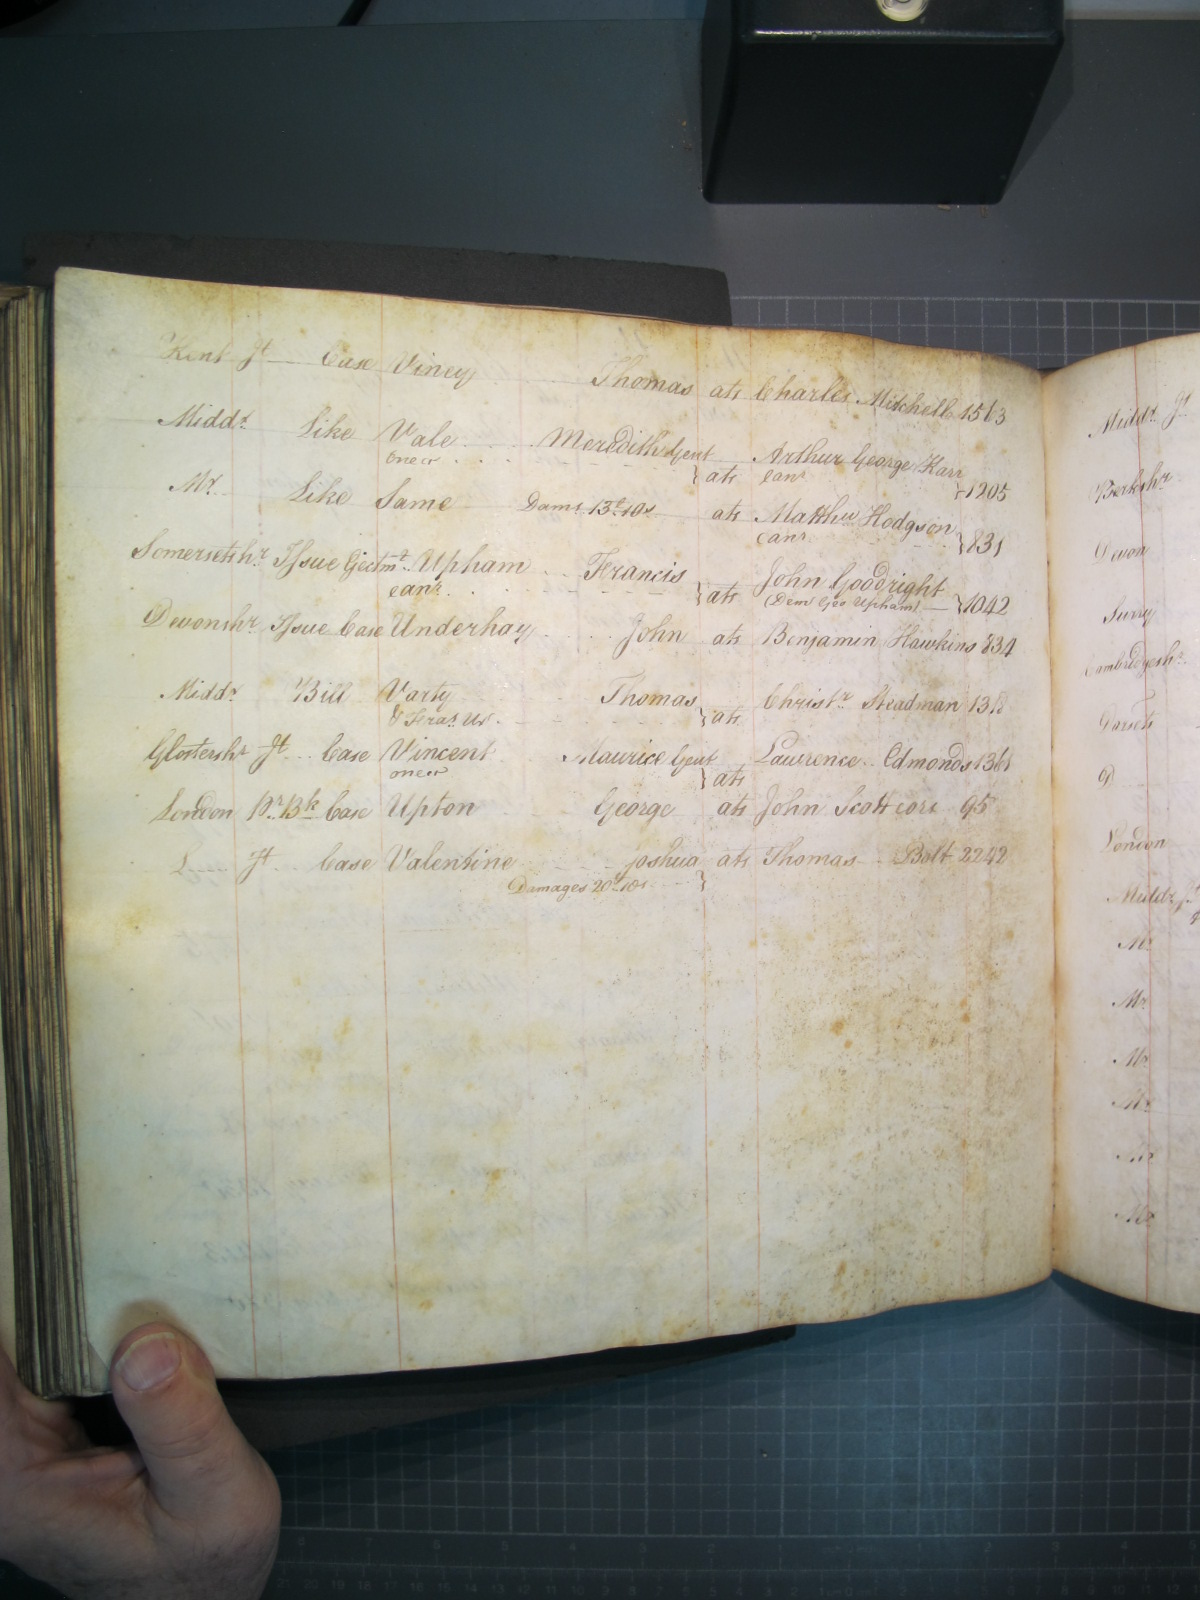 Kent Jt Case Viney Thomas ats Charles Mitchell 1513
Middx. Like Vale Meredith Gent ats Arthur George Karr 1205
one &c
Mx. Like Same Dams. 13£ 10s ats Matthw Hodgson 831
Somersetshr. Issue Ejectmt. Upham Francis ats John Goodright 1042
(Dem Geo Upham)
Devonshr Issue Case Underhay John ats Benjamin Hawkins 834
Middx Bill Varty Thomas ats Christr Steadman 1318
& Fras. Ux.
Glostershr Jt Case Vincent Maurice Gent ats Lawrence Edmonds 1361
one &c
London Pr. Bk Case Upton George ats John Scott 95
L Jt Case Valentine Joshua ats Thomas Bolt 2242
Damages 20£ 10s
Middx. Jt
Berkshr
Devon
Surry
Cambridgeshr.
Dorsetsh
D
London
Middx Jt
Mx
Mx
Mx
Mx
Mx
Mx